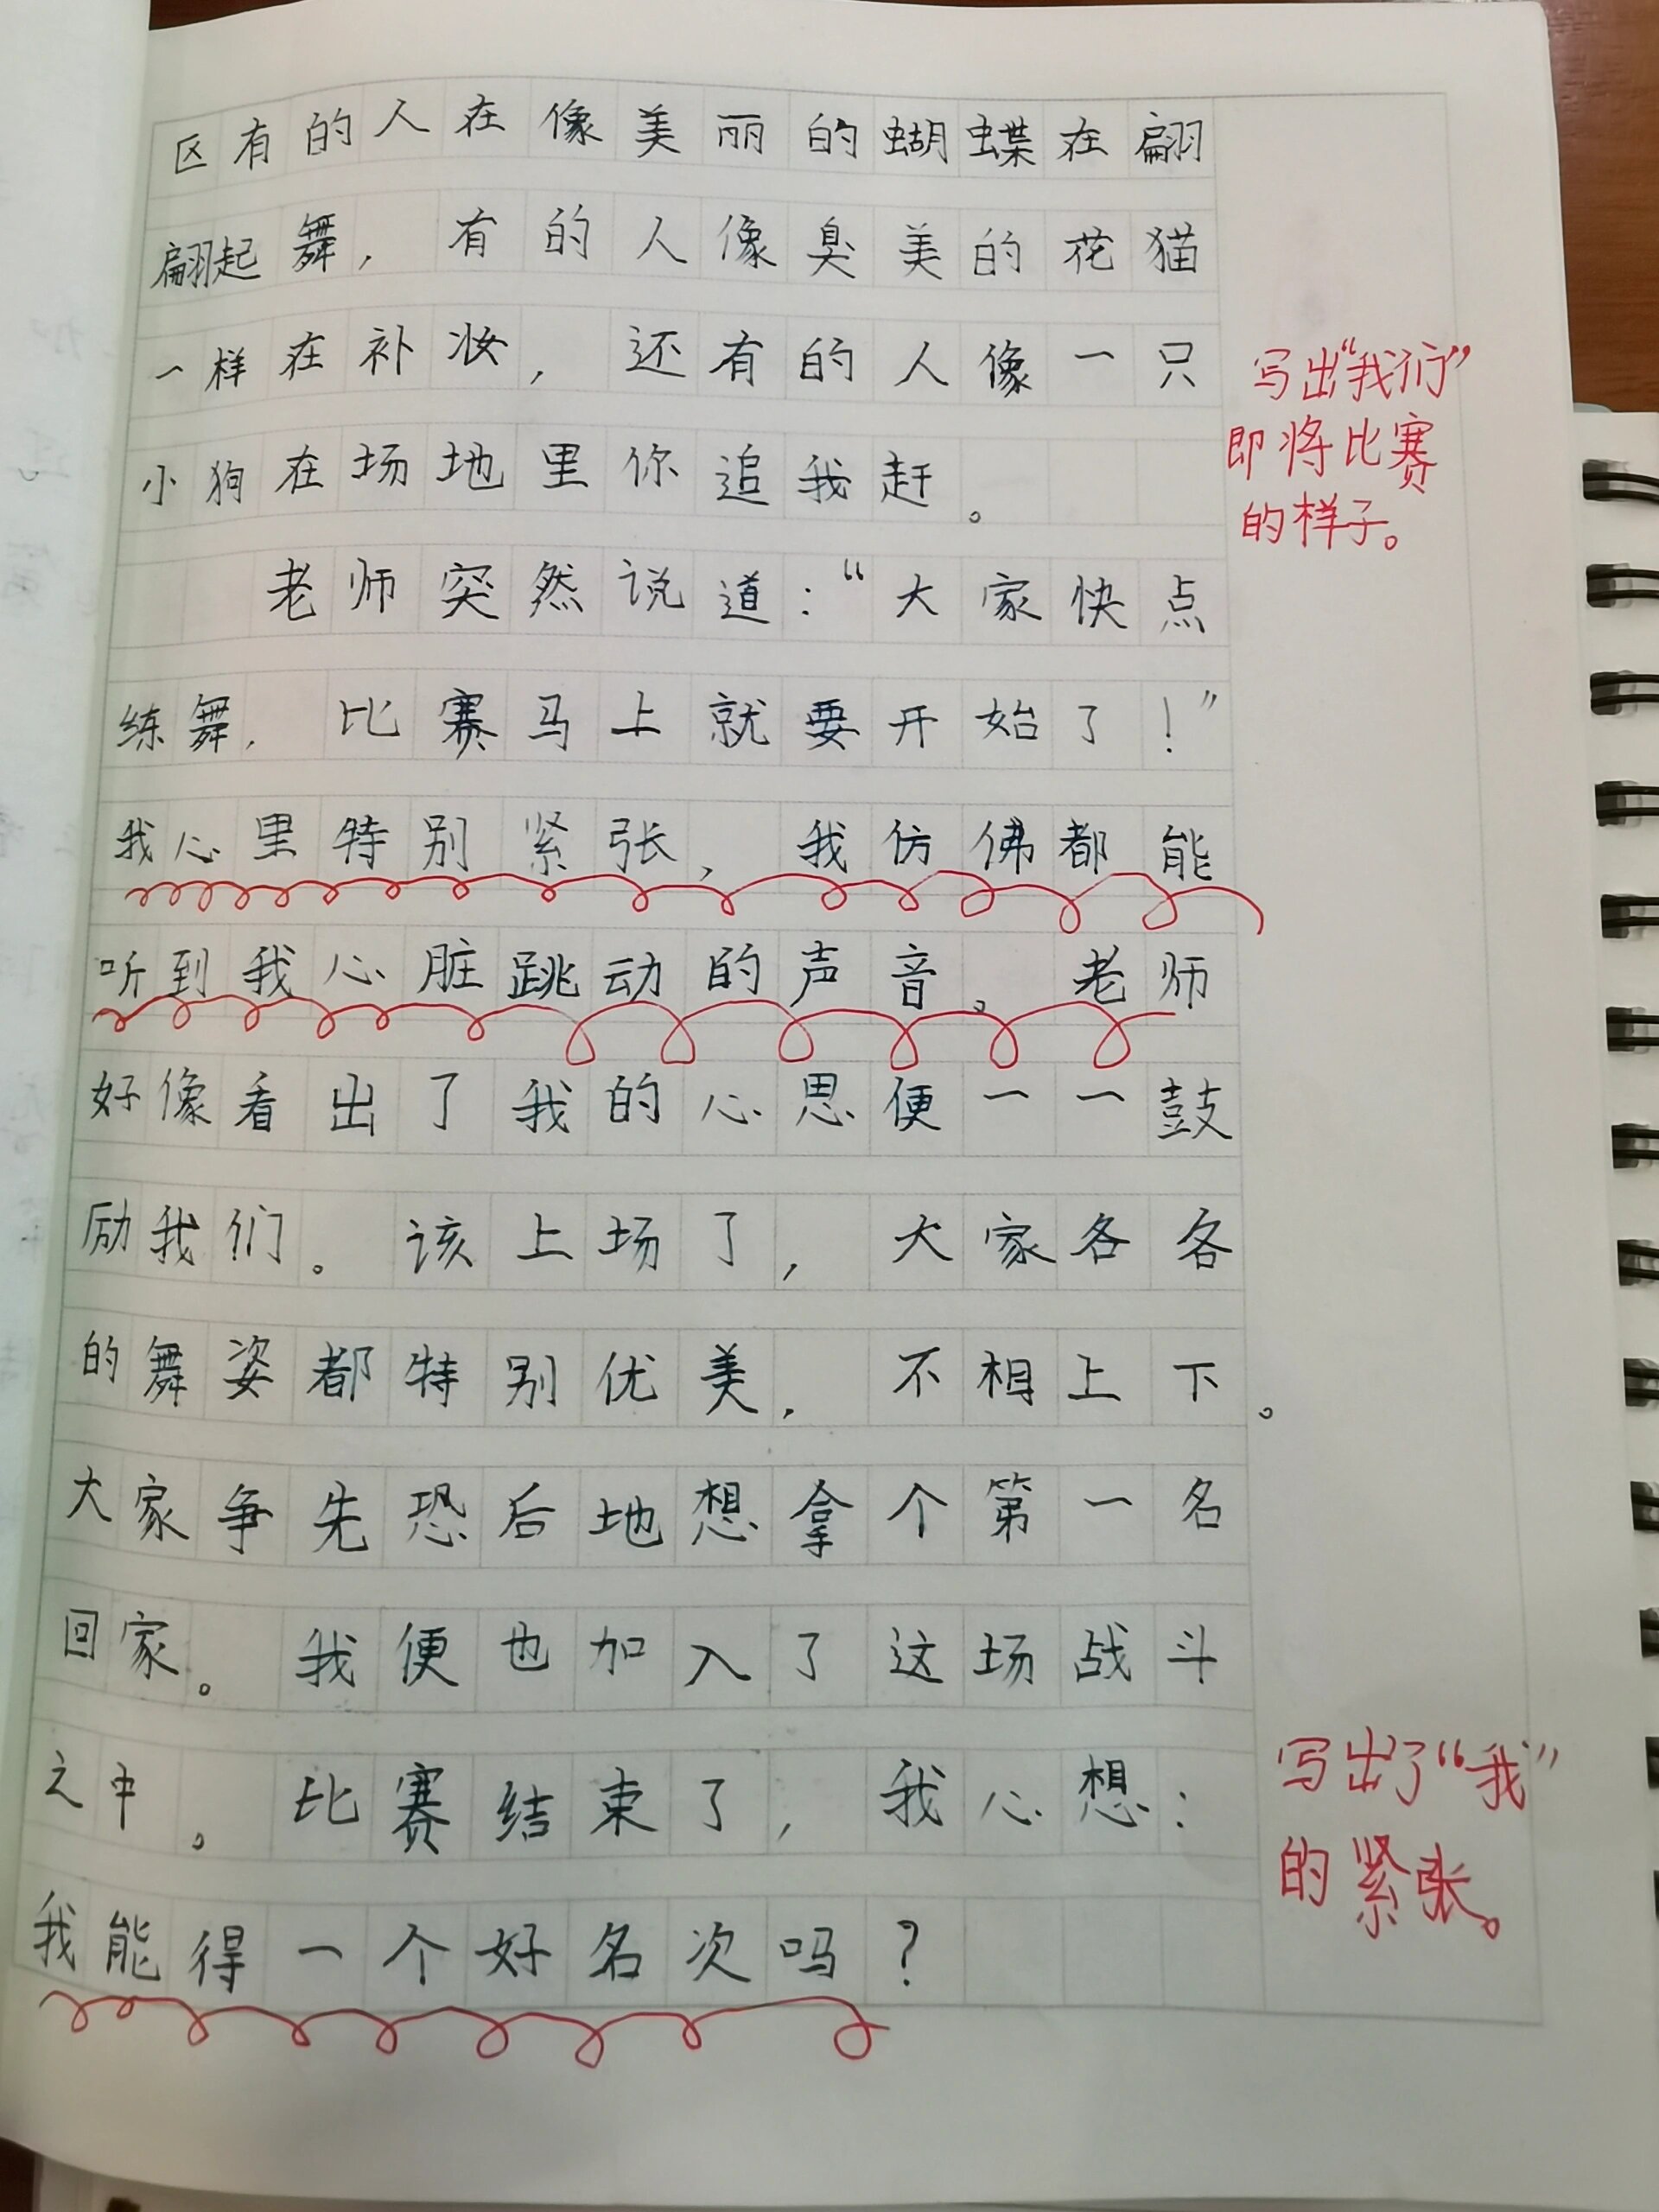 区有的人在像美丽的蝴蝶在翩
翩起舞，有的人像臭美的花猫
一样在补妆，还有的人像一只
小狗在场地里你追我赶。
老师突然说道：“大家快点
练舞，比赛马上就要开始了！”
我心里特别紧张，我仿佛都能
听到我心脏跳动的声音。老师
好像看出了我的心思便一一鼓
励我们。该上场了，大家各各
的舞姿都特别优美，不相上下。
大家争先恐后地想拿个第一名
回家。我便也加入了这场战斗
之中。比赛结束了，我心想：
我能得一个好名次吗？
写出“我们”
即将比赛
的样子。
写出了“我”
的紧张。